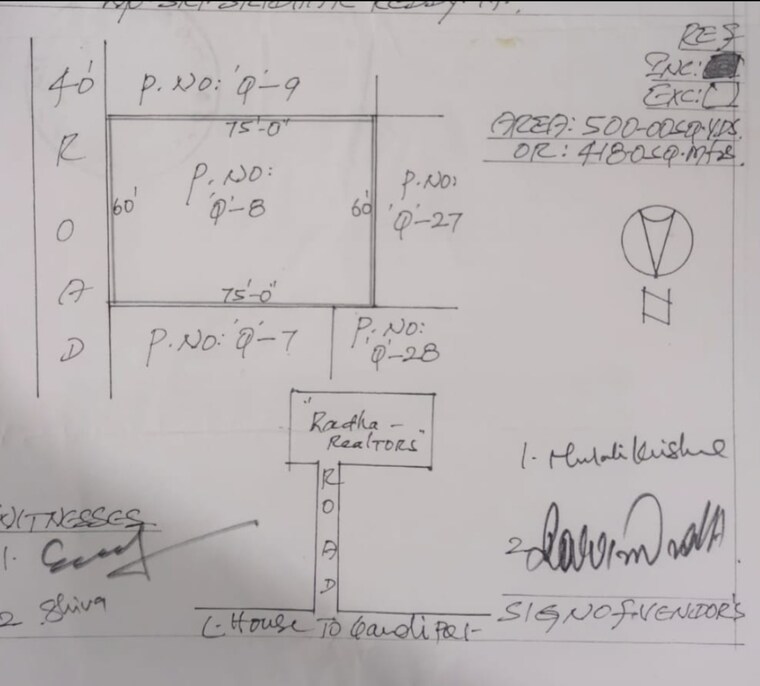 REF
INC:
EXC:
AREA: 500-00SQ.YDS.
OR: 418-0SQ.Mts.
40'
ROAD
P.NO: 'Q'-9
75'-0"
P.NO: 'Q'-8
60'
60'
P.NO: 'Q'-27
75'-0"
P.NO: 'Q'-7
P.NO: 'Q'-28
N
"Radha - RealTORS"
ROAD
House TO Gandipet
WITNESSES
1.
2 Shiva
1. Murali Krishna
2.
SIGN OF VENDOR'S